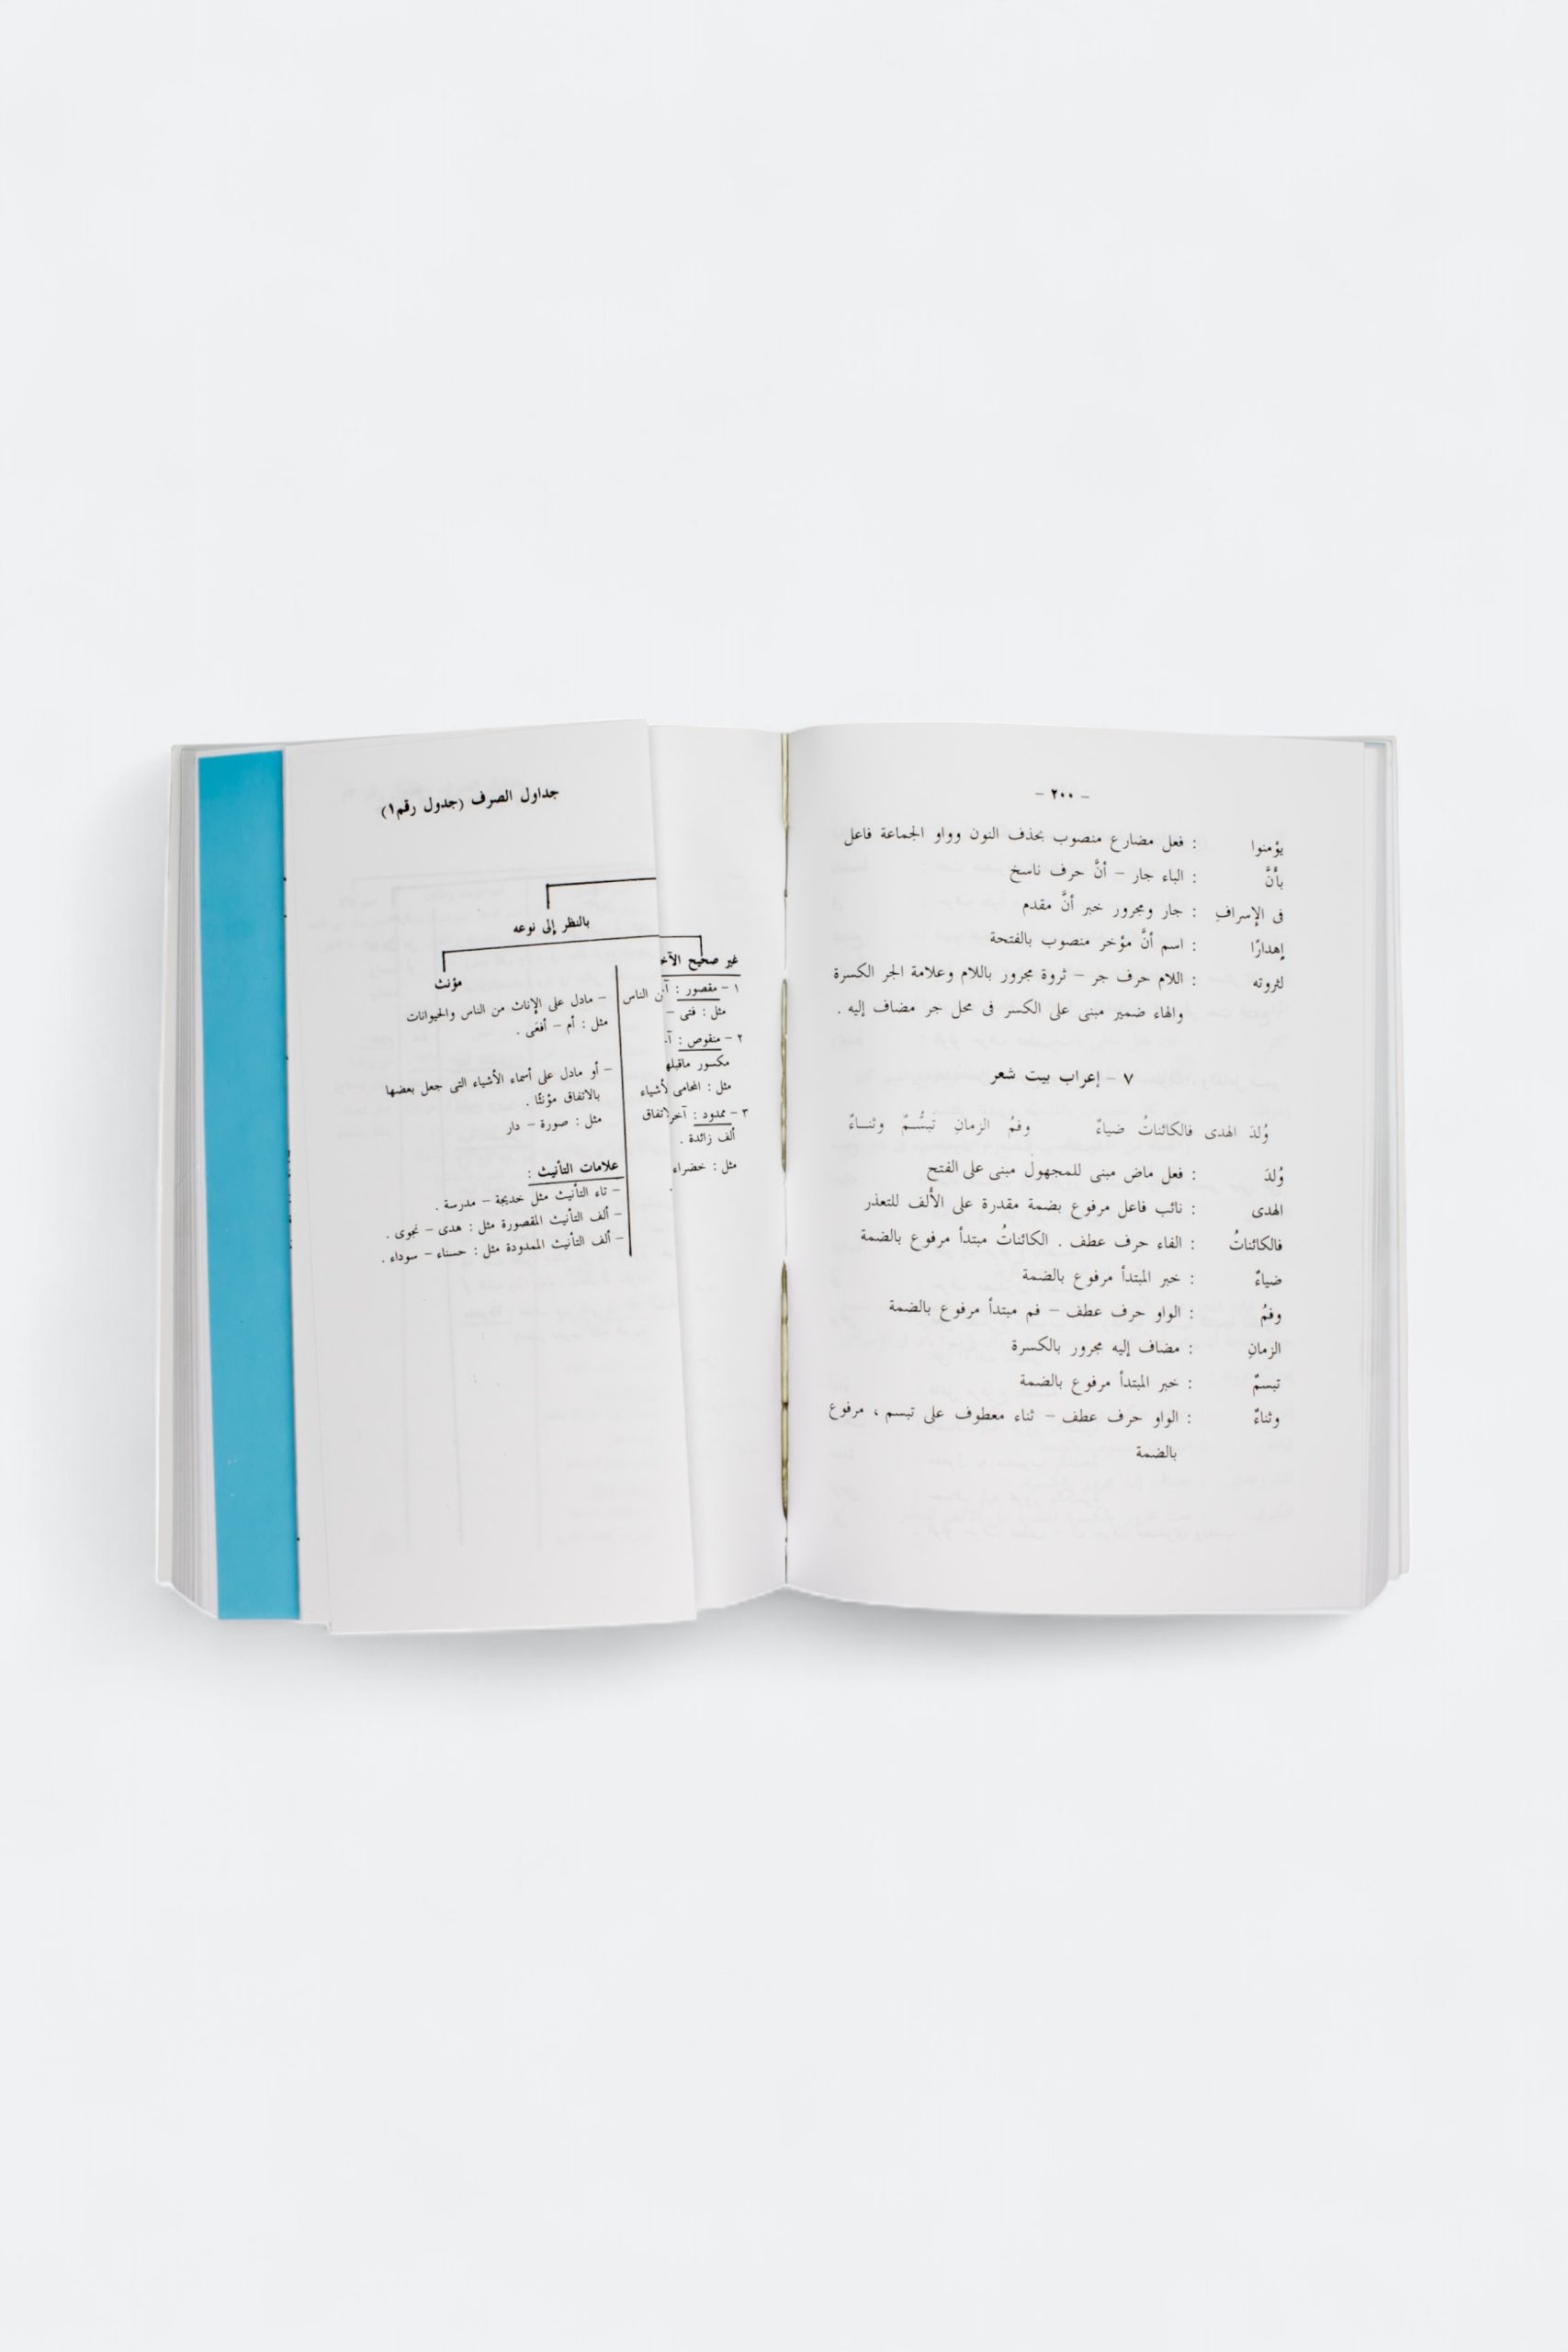 – ٢٠٠ –
يؤمنوا : فعل مضارع منصوب بحذف النون وواو الجماعة فاعل
بأنَّ : الباء جار – أنَّ حرف ناسخ
فى الإسرافِ : جار ومجرور خبر أنَّ مقدم
إهدارًا : اسم أنَّ مؤخر منصوب بالفتحة
لثروته : اللام حرف جر – ثروة مجرور باللام وعلامة الجر الكسرة
والهاء ضمير مبنى على الكسر فى محل جر مضاف إليه .
٧ – إعراب بيت شعر
وُلدَ الهدى فالكائناتُ ضياءٌ وفمُ الزمانِ تبسُّمٌ وثنـاءٌ
وُلدَ : فعل ماض مبنى للمجهول مبنى على الفتح
الهدى : نائب فاعل مرفوع بضمة مقدرة على الألف للتعذر
فالكائناتُ : الفاء حرف عطف . الكائناتُ مبتدأ مرفوع بالضمة
ضياءٌ : خبر المبتدأ مرفوع بالضمة
وفمُ : الواو حرف عطف – فم مبتدأ مرفوع بالضمة
الزمانِ : مضاف إليه مجرور بالكسرة
تبسمٌ : خبر المبتدأ مرفوع بالضمة
وثناءٌ : الواو حرف عطف – ثناء معطوف على تبسم ، مرفوع
بالضمة
غير صحيح
١ – مقصور :
مثل : فتى –
٢ – منقوص :
مكسور ماقبلها
مثل : المحامى
٣ – ممدود :
ألف زائدة .
مثل : خضراء
جداول الصرف (جدول رقم١)
بالنظر إلى نوعه
مؤنث
ن الناس
لأشياء
لاتفاق
– مادل على الإناث من الناس والحيوانات
مثل : أم – أفعَى .
– أو مادل على أسماء الأشياء التى جعل بعضها
بالاتفاق مؤنثًا .
مثل : صورة – دار
علامات التأنيث :
– تاء التأنيث مثل خديجة – مدرسة .
– ألف التأنيث المقصورة مثل : هدى – نجوى .
– ألف التأنيث الممدودة مثل : حسناء – سوداء .